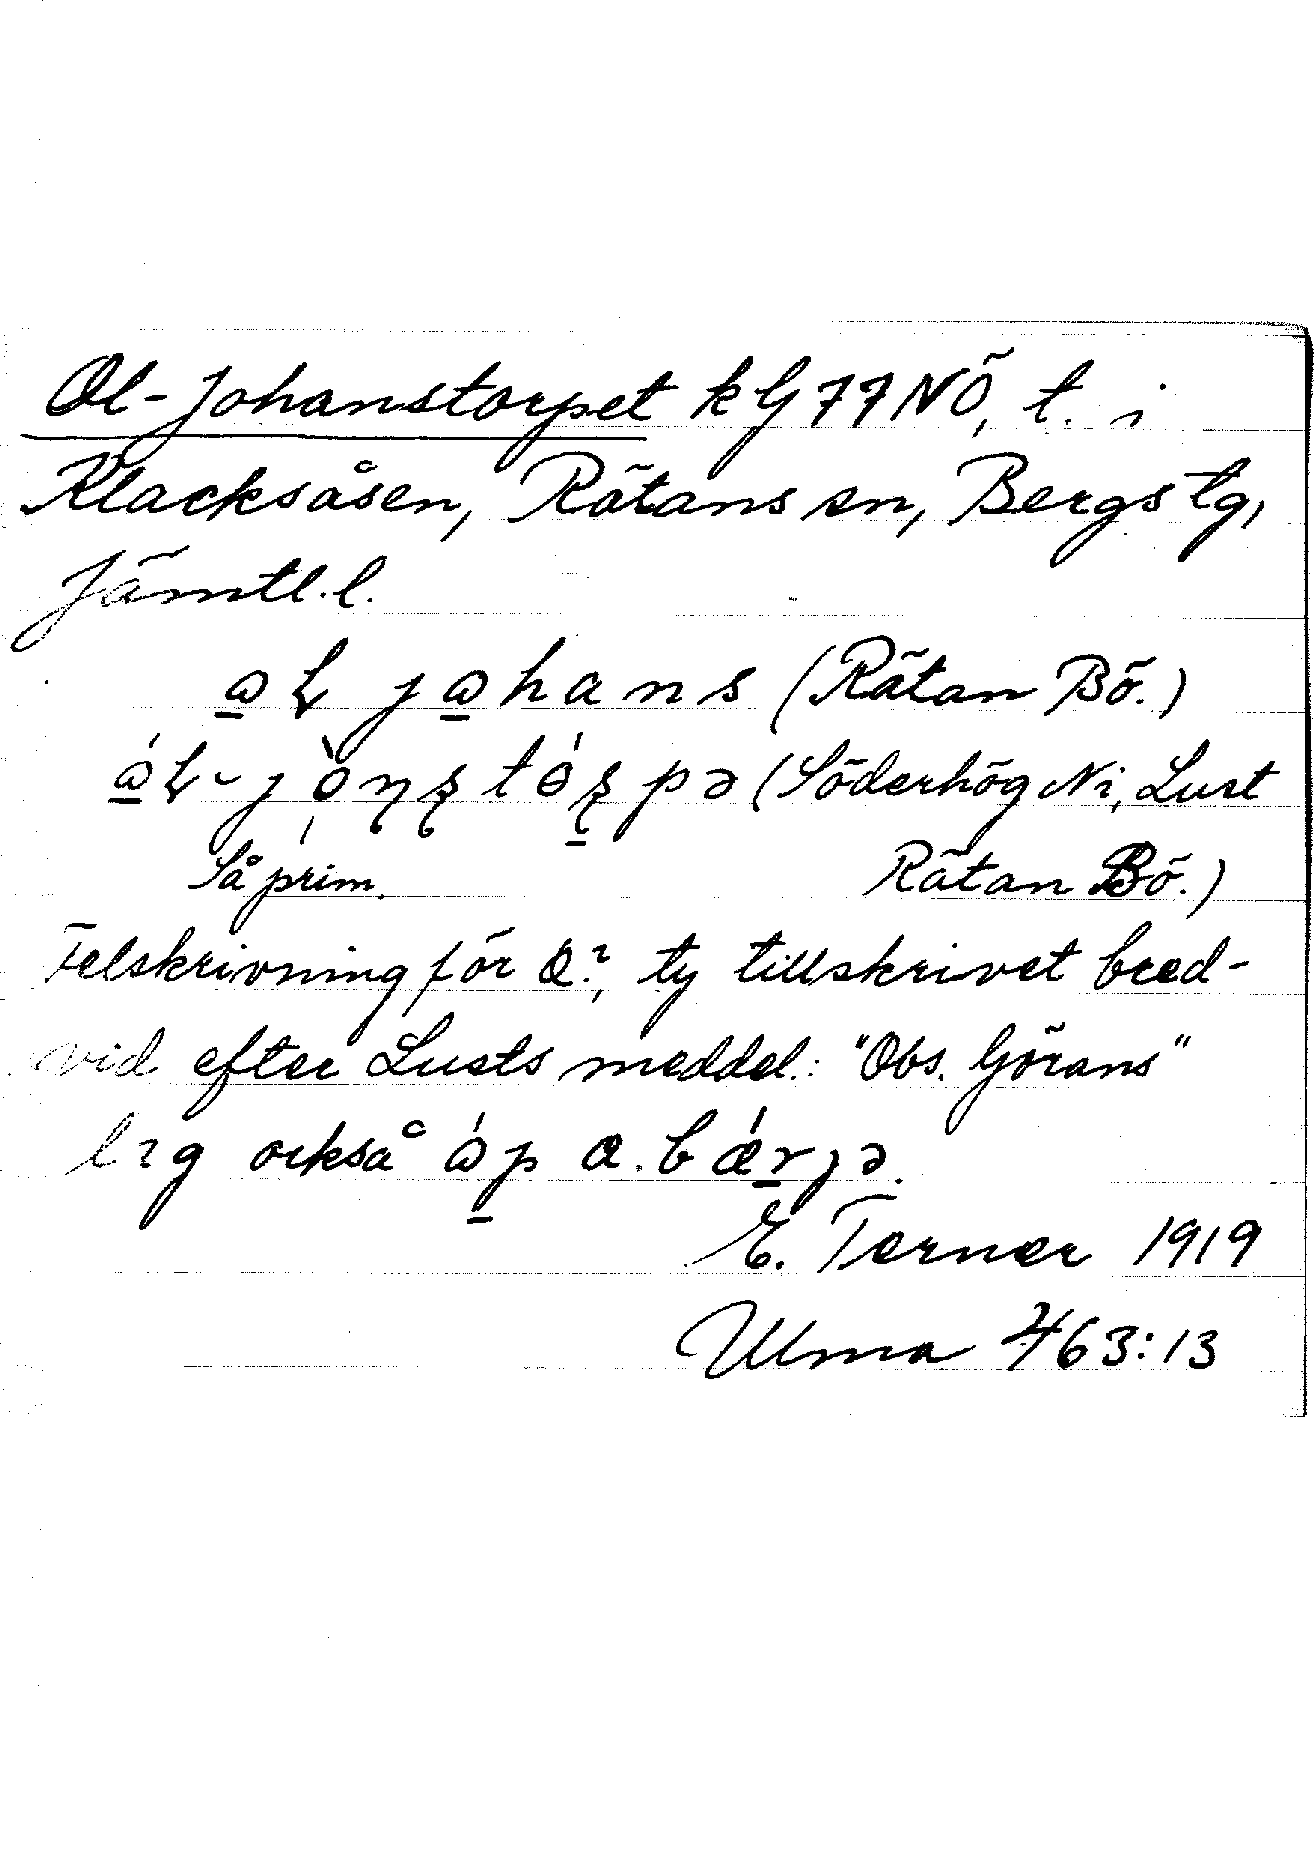 Ol-Johanstorpet kG 77 NÖ, t. i
Klacksåsen, Rätans sn, Bergs tg,
Jämtl. l.
johans (Rätan Bö.)
(Söderhög Ni, Lust
Så prim. Rätan Bö.)
Felskrivning för ty tillskrivet bred-
vid efter Lusts meddel.: "Obs. Görans"
också
E. Terner 1919
Ulma 463:13